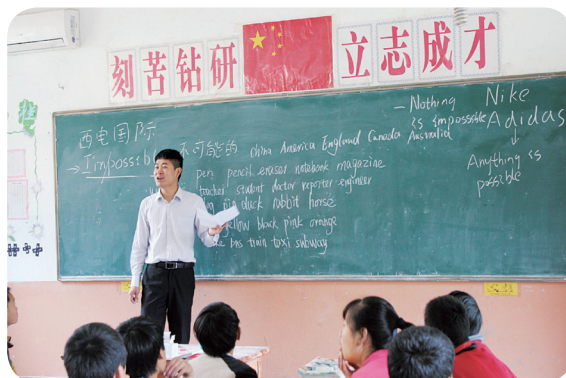 刻苦钻研
立志成才
西电国际
Impossible 不可能的
China America England Canada Australia
pen pencil eraser notebook magazine
teacher student doctor reporter engineer
duck rabbit horse
yellow black pink orange
bus train taxi subway
Nothing
is impossible
Nike
Adidas
Anything is
possible